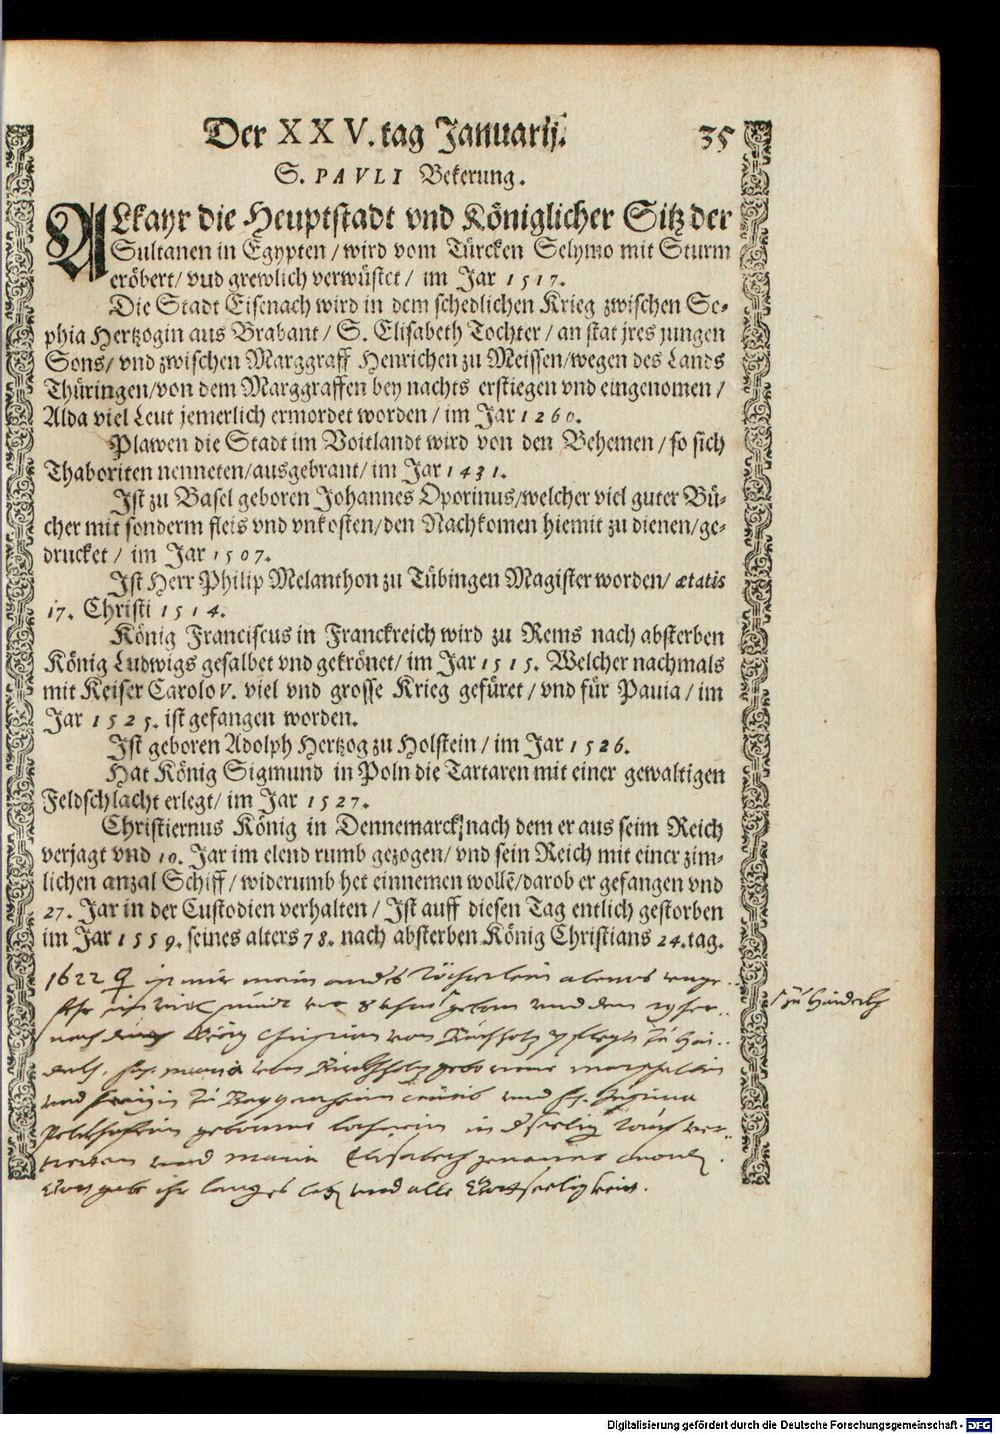 Der XXV. tag Januarij. 35
S. PAVLI Bekerung.
ALkayr die Heuptstadt vnd Königlicher Sitz der
Sultanen in Egypten / wird vom Türcken Selymo mit Sturm
eröbert / vnd grewlich verwüstet / im Jar 1517.
Die Stadt Eisenach wird in dem schedlichen Krieg zwischen So-
phia Hertzogin aus Brabant / S. Elisabeth Tochter / an stat jres jungen
Sons / vnd zwischen Marggraff Henrichen zu Meissen / wegen des Lands
Thüringen / von dem Marggraffen bey nachts erstiegen vnd eingenomen /
Alda viel Leut jemerlich ermordet worden / im Jar 1260.
Plawen die Stadt im Voitlandt wird von den Behemen / so sich
Thaboriten nenneten / ausgebrant / im Jar 1431.
Ist zu Basel geboren Johannes Oporinus / welcher viel guter Bü-
cher mit sonderm fleis vnd vnkosten / den Nachkomen hiemit zu dienen / ge-
drucket / im Jar 1507.
Ist Herr Philip Melanthon zu Tübingen Magister worden / ætatis
17. Christi 1514.
König Franciscus in Franckreich wird zu Rems nach absterben
König Ludwigs gesalbet vnd gekrönet / im Jar 1515. Welcher nachmals
mit Keiser Carolo V. viel vnd grosse Krieg gefüret / vnd für Pauia / im
Jar 1525. ist gefangen worden.
Ist geboren Adolph Hertzog zu Holstein / im Jar 1526.
Hat König Sigmund in Poln die Tartaren mit einer gewaltigen
Feldschlacht erlegt / im Jar 1527.
Christiernus König in Dennemarck / nach dem er aus seim Reich
verjagt vnd 10. Jar im elend rumb gezogen / vnd sein Reich mit einer zim-
lichen anzal Schiff / widerumb het einnemen wollē / darob er gefangen vnd
27. Jar in der Custodien verhalten / Ist auff diesen Tag entlich gestorben
im Jar 1559. seines alters 78. nach absterben König Christians 24. tag.
1622 ♀ ist mir mein anders Töchterlein
vnd
nach
maria von geborne
vnd zu vnd
geborne in
vnd maria Elisabeth
Gott gebe ihr langes leben vnd alle Gottseligkeit.
Digitalisierung gefördert durch die Deutsche Forschungsgemeinschaft - DFG